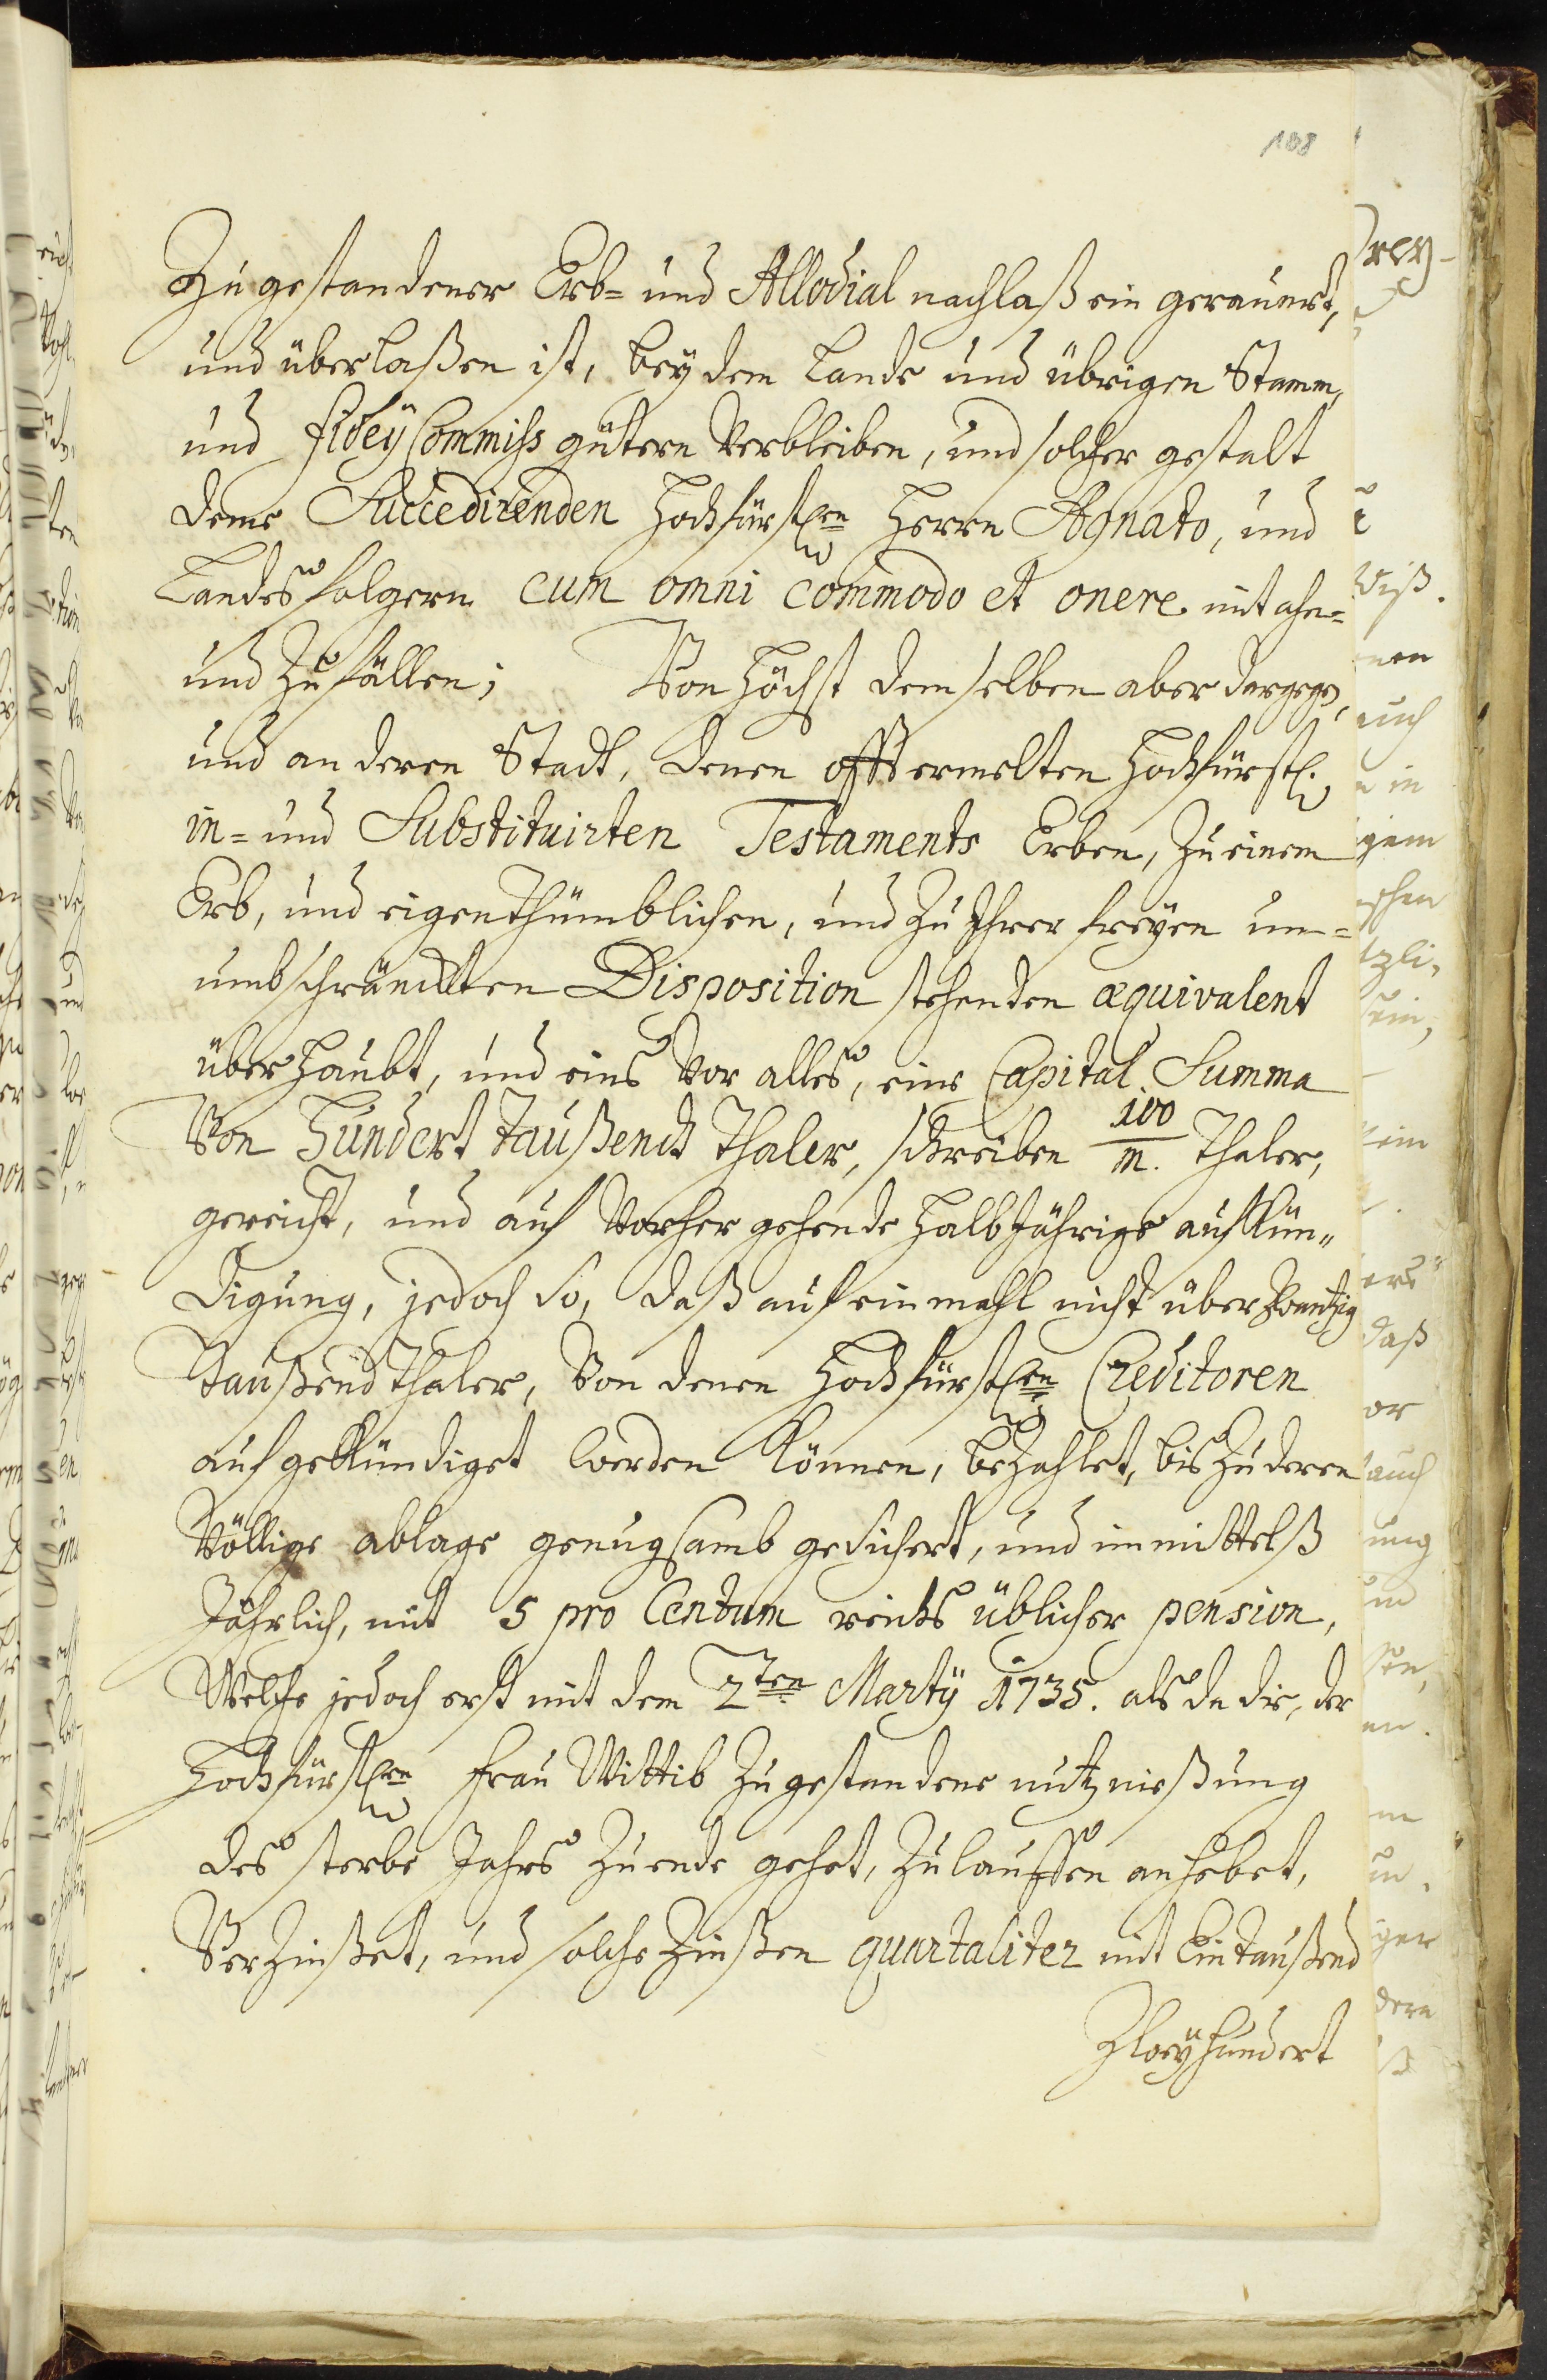 108
Zugestandener Erb= und Allodial nachlaß ein geraumt,
und überlaßen ist, bey dem Lande und übrigen Stamm,
und fideÿ Commiss gütern Verbleiben, und solcher gestalt
deme Succedirenden Hochfürstlen Herrn Agnato, und
Landes folgern cum omni commodo et onere mit ahn=
und Zufallen; Von Höchst demselben aber dargegen,
und an deren Stadt, denen offtermelten Hochfürstl.
in= und Substituirten Testaments Erben, Zu einem
Erb, und eigenthümblichen, und Zu Ihrer freyen un=
umbschränckten Disposition stehenden æquivalent
über Haubt, und eins Vor alles, eine Capital Summa
Von Hundert taußendt Thaler, schreiben 100/m. Thaler,
gereicht, und auf Vorher gehende Halb Jährige auf Kün„
digung, jedoch so, daß auf ein mahl nicht über Zwantzig
Taußend Thaler, Von denen Hochfürstlen Creditoren
auf gekündiget werden können, bezahlet, bis Zu deren
Völlige ablage genugsamb gesichert, und immittelß
Jährlich, mit 5 pro Centum reichs üblicher pension,
Welche jedoch erst mit dem 2ten Martÿ 1735. als da die, der
Hochfürstlen Frau Wittib Zugestandene nutznießung
des sterbe Jahrs Zu ende gehet, Zu lauffen anhebet,
Verzinßet, und solche Zinßen quartaliter mit Eintaußend
Zweÿhundert